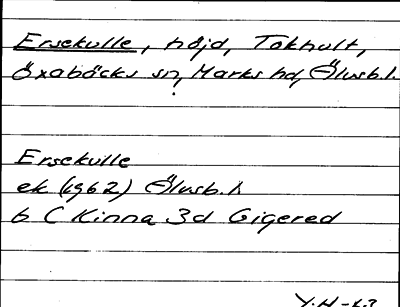 Ersekulle, höjd, Tokhult,
Öxabäcks sn, Marks hd, Älvsb. l.
Ersekulle
ek (1962) Älvsb. l.
b C Kinna 3d Gigered